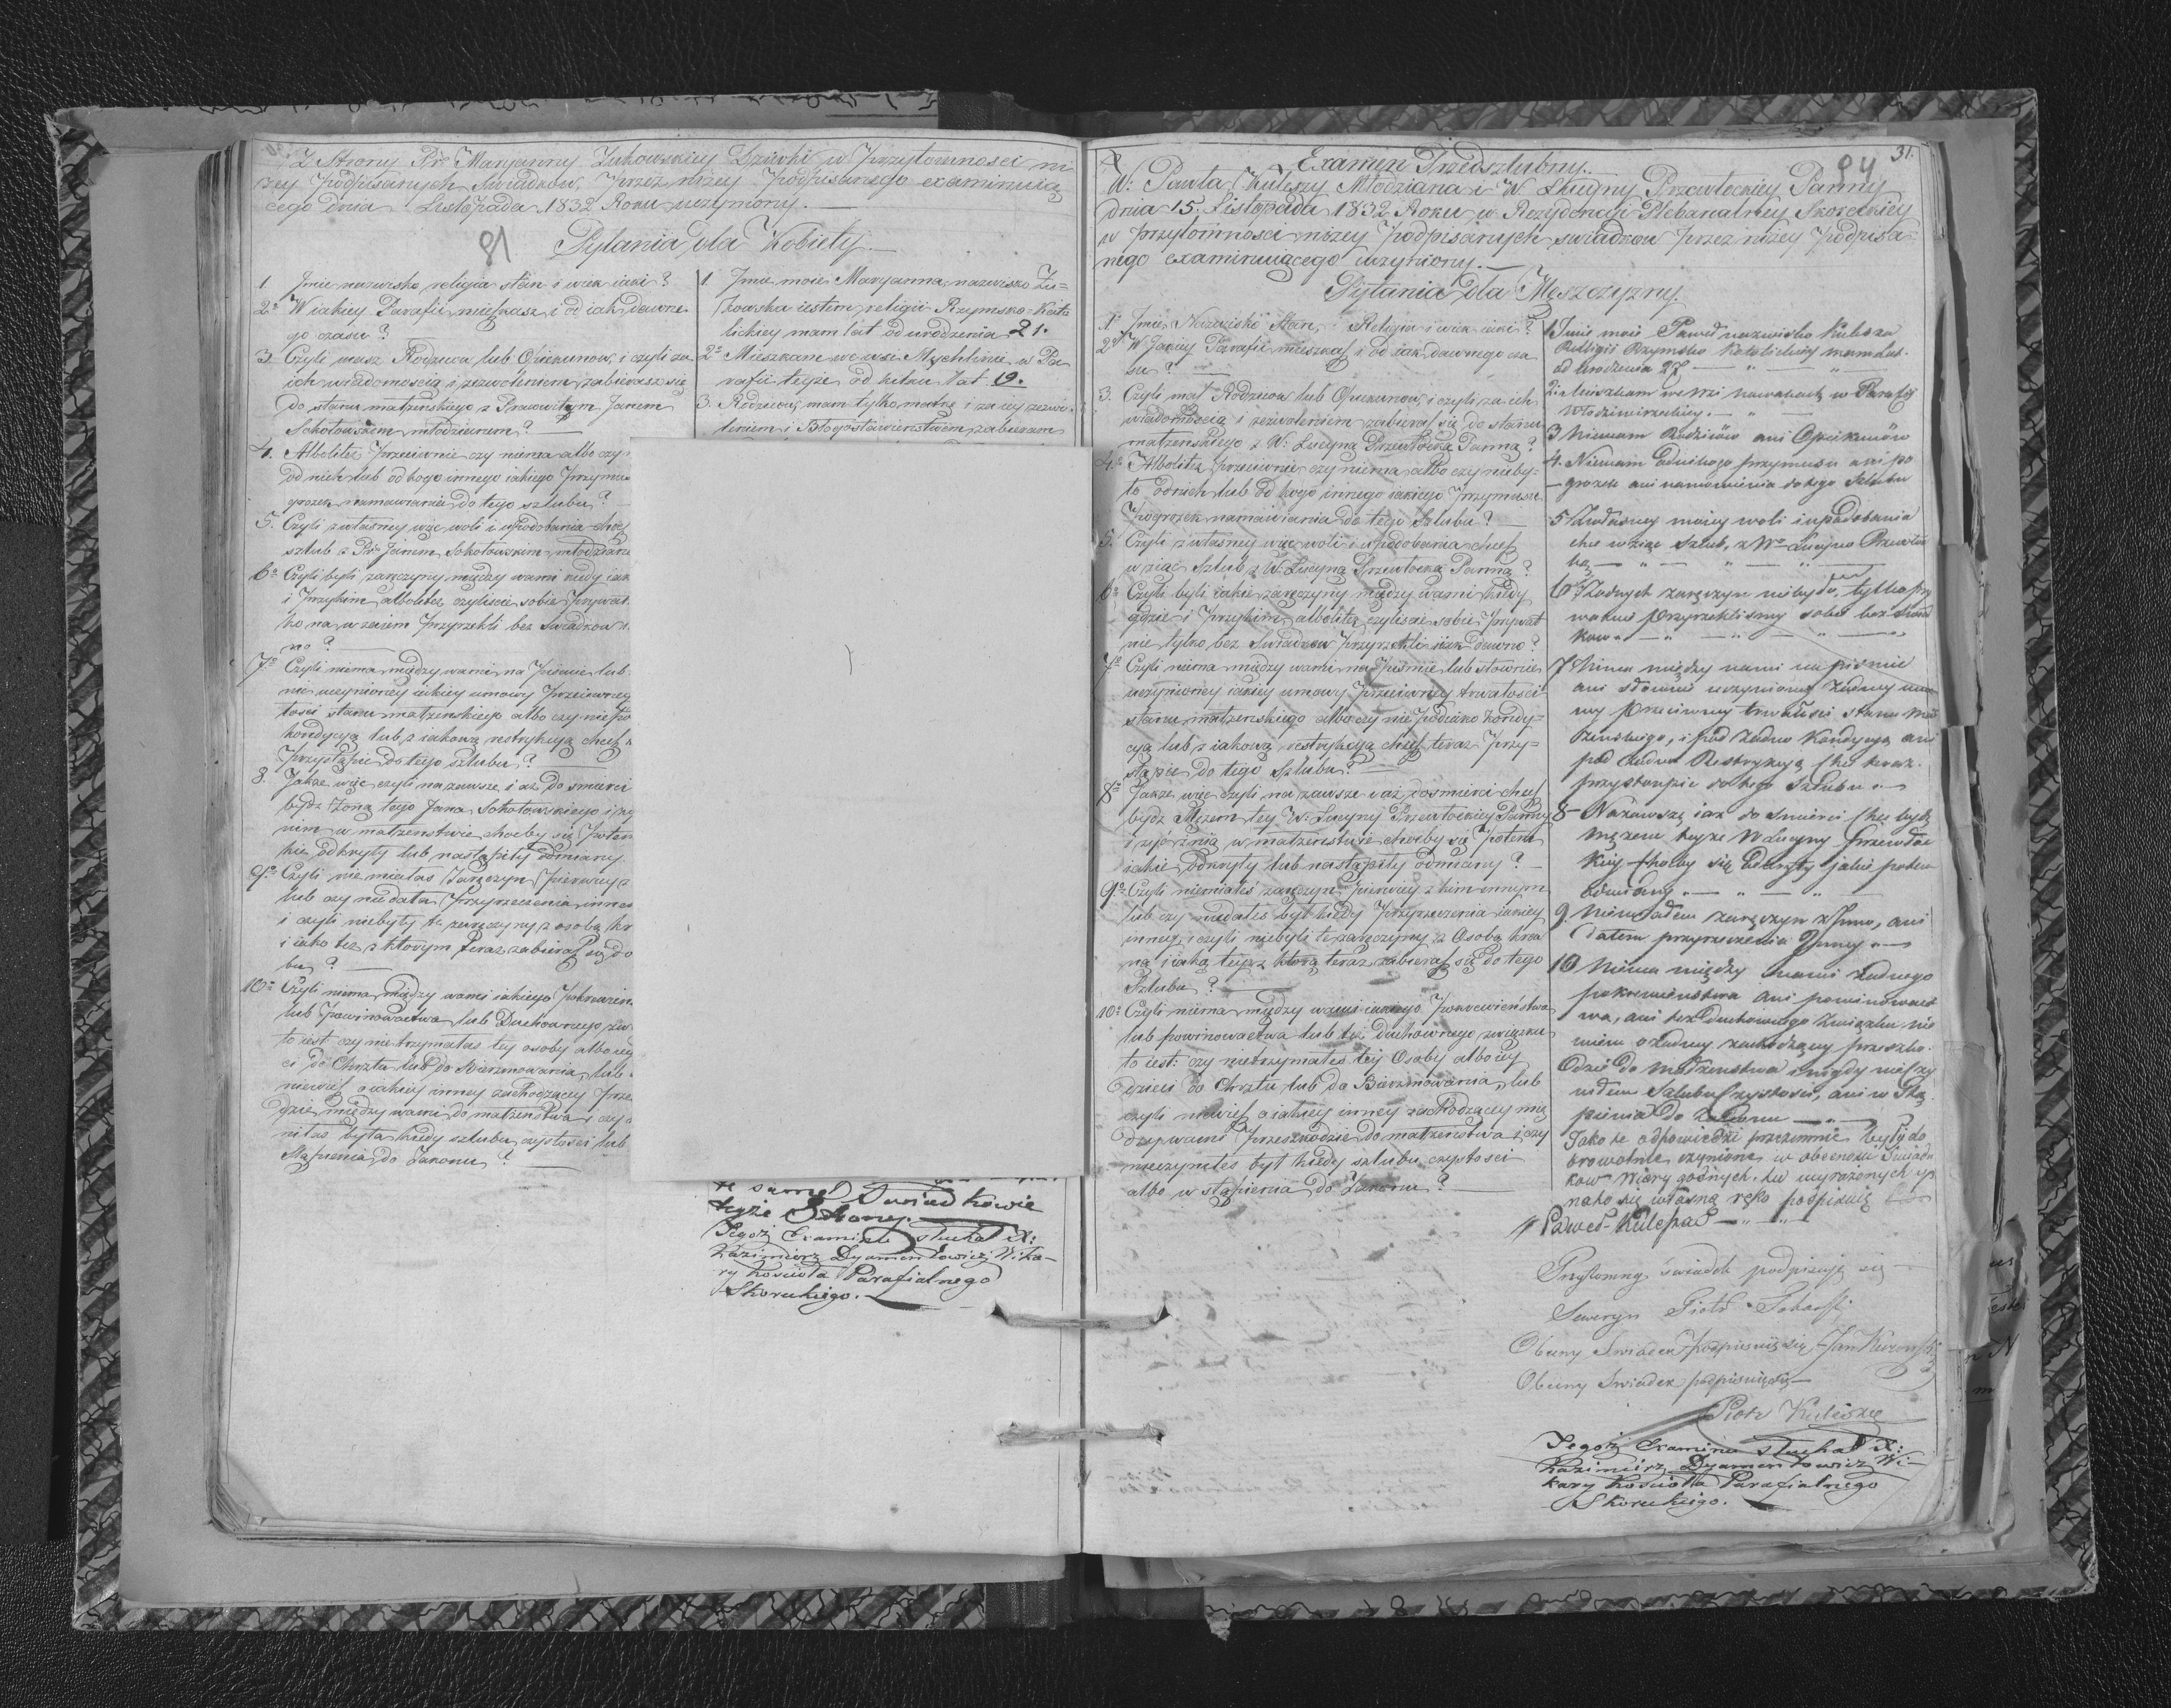 Z Strony Pr: Maryanny Żukowskiey Dziewki w Przytomnosci ni
zey Podpisanych Swiadkow, przez niżey Podpisanego examinuią
cego dnia Listopada 1832 Roku uczyniony.
81
Pytania dla Kobiety.
1 Jmie nazwisko religia stan i wiek iaki?
2o W iakiey Parafii mieszkasz i od iak dawne
go czasu?
3 Czyli masz Rodzicow lub Opiekunow, i czyli za
ich wiadomoscią i zezwoleniem zabierasz się
do stanu małzenskiego z Pracowitym Janem
Sokołowskim młodzianem?
4. Albolitéż przeciwnie czy niema albo czy
od nich lub od kogo innego iakiego Przymu
grozek namawiania do tego szlubu?
5. Czyli z własney więc woli i upodobania chcesz
szlub z Pr: Janem Sokołowskim młodziane
6o Czyli byli zaręczyny między wami kiedy
i przykim, albolitéż czyliscie sobie prywat
no?
7o Czyli niema między wami na Pismie lub
nie uczynioney iakiey umowy przeciwney
łosci stanu małzenskiego albo czy nie po
kondycyą lub z iakową restrykcyą chcesz
Przystąpić do tego szlubu?
8. Jakże więc czyli na zawsze i aż do smierci
bydz Zoną tego Jana Sokołowskiego i
nim w małzenstwie choćby się potem
kie odkryły lub nastąpiły odmiany.
9o Czyli nie miałas Zaręczyn Pierwey z
lub czy nie dała Przyrzeczenia
i czyli niebyły te zaręczyny z osobą
i iako też z ktorym teraz zabierasz się do
bu?
10o Czyli niema między wami iakiego Pokrewień
lub Powinowactwa lub Duchownego
to iest czy nie trzymałas tey osoby albo iey
ci do Chrztu lub do Bierzmowania, lub
niewiesz o iakiey inney zachodzącey prze
dzie między wami do małzenstwa i czy
niłas byłą kiedy szlubu czystosci lub
stąpienia do Zakonu?
1. Jmie moie Maryanna, nazwisko Żu=
kowska iestem religii Rzymsko=Kato
lickiey mam lat od urodzenia 21.
2o Mieszkam we wsi Mychlinie, w Pa
rafii teyże od kilku lat 19.
3. Rodzicow mam tylko matkę i za iey zezwo
leniem i Błogosławieństwem zabieram
Swiadkowie
teyże Strony.
Tegoż Examinu słuchał X:
Kazimierz Dyamentowicz Wika-
ry Kościoła Parafialnego
Skoreckiego.
31.
84
Examen Przedszlubny.
W: Pawła Kuleszy Młodziana i W. Lucyny Przewłockiey Panny
dnia 15. Listopada 1832 Roku w Rezydencyi Plebanalney Skoreckiey
w przytomnosci niżey podpisanych swiadkow przez niżey podpisa=
nego examinuiącego uczyniony.
Pytania dla Męszczyzny.
1o Jmie, Nazwisko Stan, Religia i wiek iaki?
2o W Jakiey Parafii mieszkasz i od iak dawnego cza
su?
3. Czyli masz Rodzicow lub Opiekunow, i czyli za ich
wiadomoscią i zezwoleniem zabierasz się do stanu
małzenskiego z W: Lucyną Przewłocką Panną?
4o Albolitéż przeciwnie czy niema albo czy nieby=
ło od nich lub od kogo innego iakiego Przymusu
Pogrozek namawiania do tego Szlubu?
5. Czyli z własney więc woli i upodobania chcesz
wziąć Szlub z W. Lucyną Przewłocką Panną?
6o Czyli byli iakie zaręczyny między wami kiedy
gdzie i przykim, albolitéż czyliscie sobie Prywat
nie tylko bez Swiadkow Przyrzekli iak dawno?
7o Czyli niema między wami na Pismie lub słownie
uczynioney iakiey umowy Przeciwney trwałosci
stanu małzenskiego albo czy nie pod iako kondy=
cyą lub z iakową restrykcyą chcesz teraz Przy=
stąpić do tego Szlubu?
8o Jakże więc czyli na zawsze i aż do smierci chcesz
bydz Mężem tey W: Lucyny Przewłockiey Panny
i żyć z nią w małzenstwie choćby się Potem
iakie odkryły lub nastąpiły odmiany?
9o Czyli niemiałes zaręczyn Pierwiey z kim innym
lub czy niedałes był kiedy Przyrzeczenia iakiey
inney, i czyli niebyli te zaręczyny z Osobą krew
ną iaką teyże którą teraz zabierasz się do tego
Szlubu?
10o Czyli niema między wami iakiego Pokrewieństwa
lub powinowactwa lub też Duchownego związku
to iest: czy nietrzymałes tey Osoby albo iey
dzieci do Chrztu lub do Bierzmowania, lub
czyli niewiesz o iakiey inney zachodzącey mię
dzy wami Przeszkodzie do małzenstwa i czy
nieczyniłes był kiedy szlubu czystosci
albo wstąpienia do Zakonu?
1 Jmie moie Paweł nazwisko Kulesza
Religii Rzymsko Katolickiey mam lat
od Urodzenia 27
2. Mieszkam we Wsi w Parafij
3 Niemam Rodziców ani Opiekunów
4. Niemam żadnego przymusu ani po
grozek ani namówienia do tego Szlubu
5 Zwłasney moiey woli i upodobania
chcę wziąć Szlub, z Wo Lucyno Przewłoc
ką
6 Żadnych zaręczyn niebyło, tylko pry
watnie Przyrzekliśmy sobie bez świad
kow
7 Niema między nami na piśmie
ani słownie uczynioney żadney umo
wy Przeciwney trwałości stanu Mał
żenskiego, i pod żadno Kondycyą ani
pod żadno Restrykcyą chcę teraz
przystąpić do tego Szlubu
8 Nazawszę iaż do Śmierci chcę być
Mężem teyże W Lucyny Przewłoc
kiey choćby się Odkryły jakie potem
odmiany
9 Niemiałem zaręczyn z Inno, ani
dałem przyrzeczenia Inney
10 Niema między Nami żadnego
pokrewieństwa Ani powinowact
wa, ani też Duchownego Związku nie
wiem o żadney zachodzącey przeszko
dzie do Małżenstwa i nigdy nieczy
niłem Szlubu Czystości, ani wstą
pienia do Zakonu
Jako te odpowiedzi przezemnie były do
browolnie czynione w obecności Świad
kow Wiary godnych. tu wyrażonych
nato się własną ręko podpisuię
Paweł Kulesza
Przytomny świadek podpisuję się
Seweryn Piotr
Obecny Swiadek Podpisuię się Jan
Obecny Swiadek podpisuię się
Piotr Kulesza
Tegoż Examinu słuchał X:
Kazimierz Dyamentowicz Wi-
kary Kościoła Parafialnego
Skoreckiego.